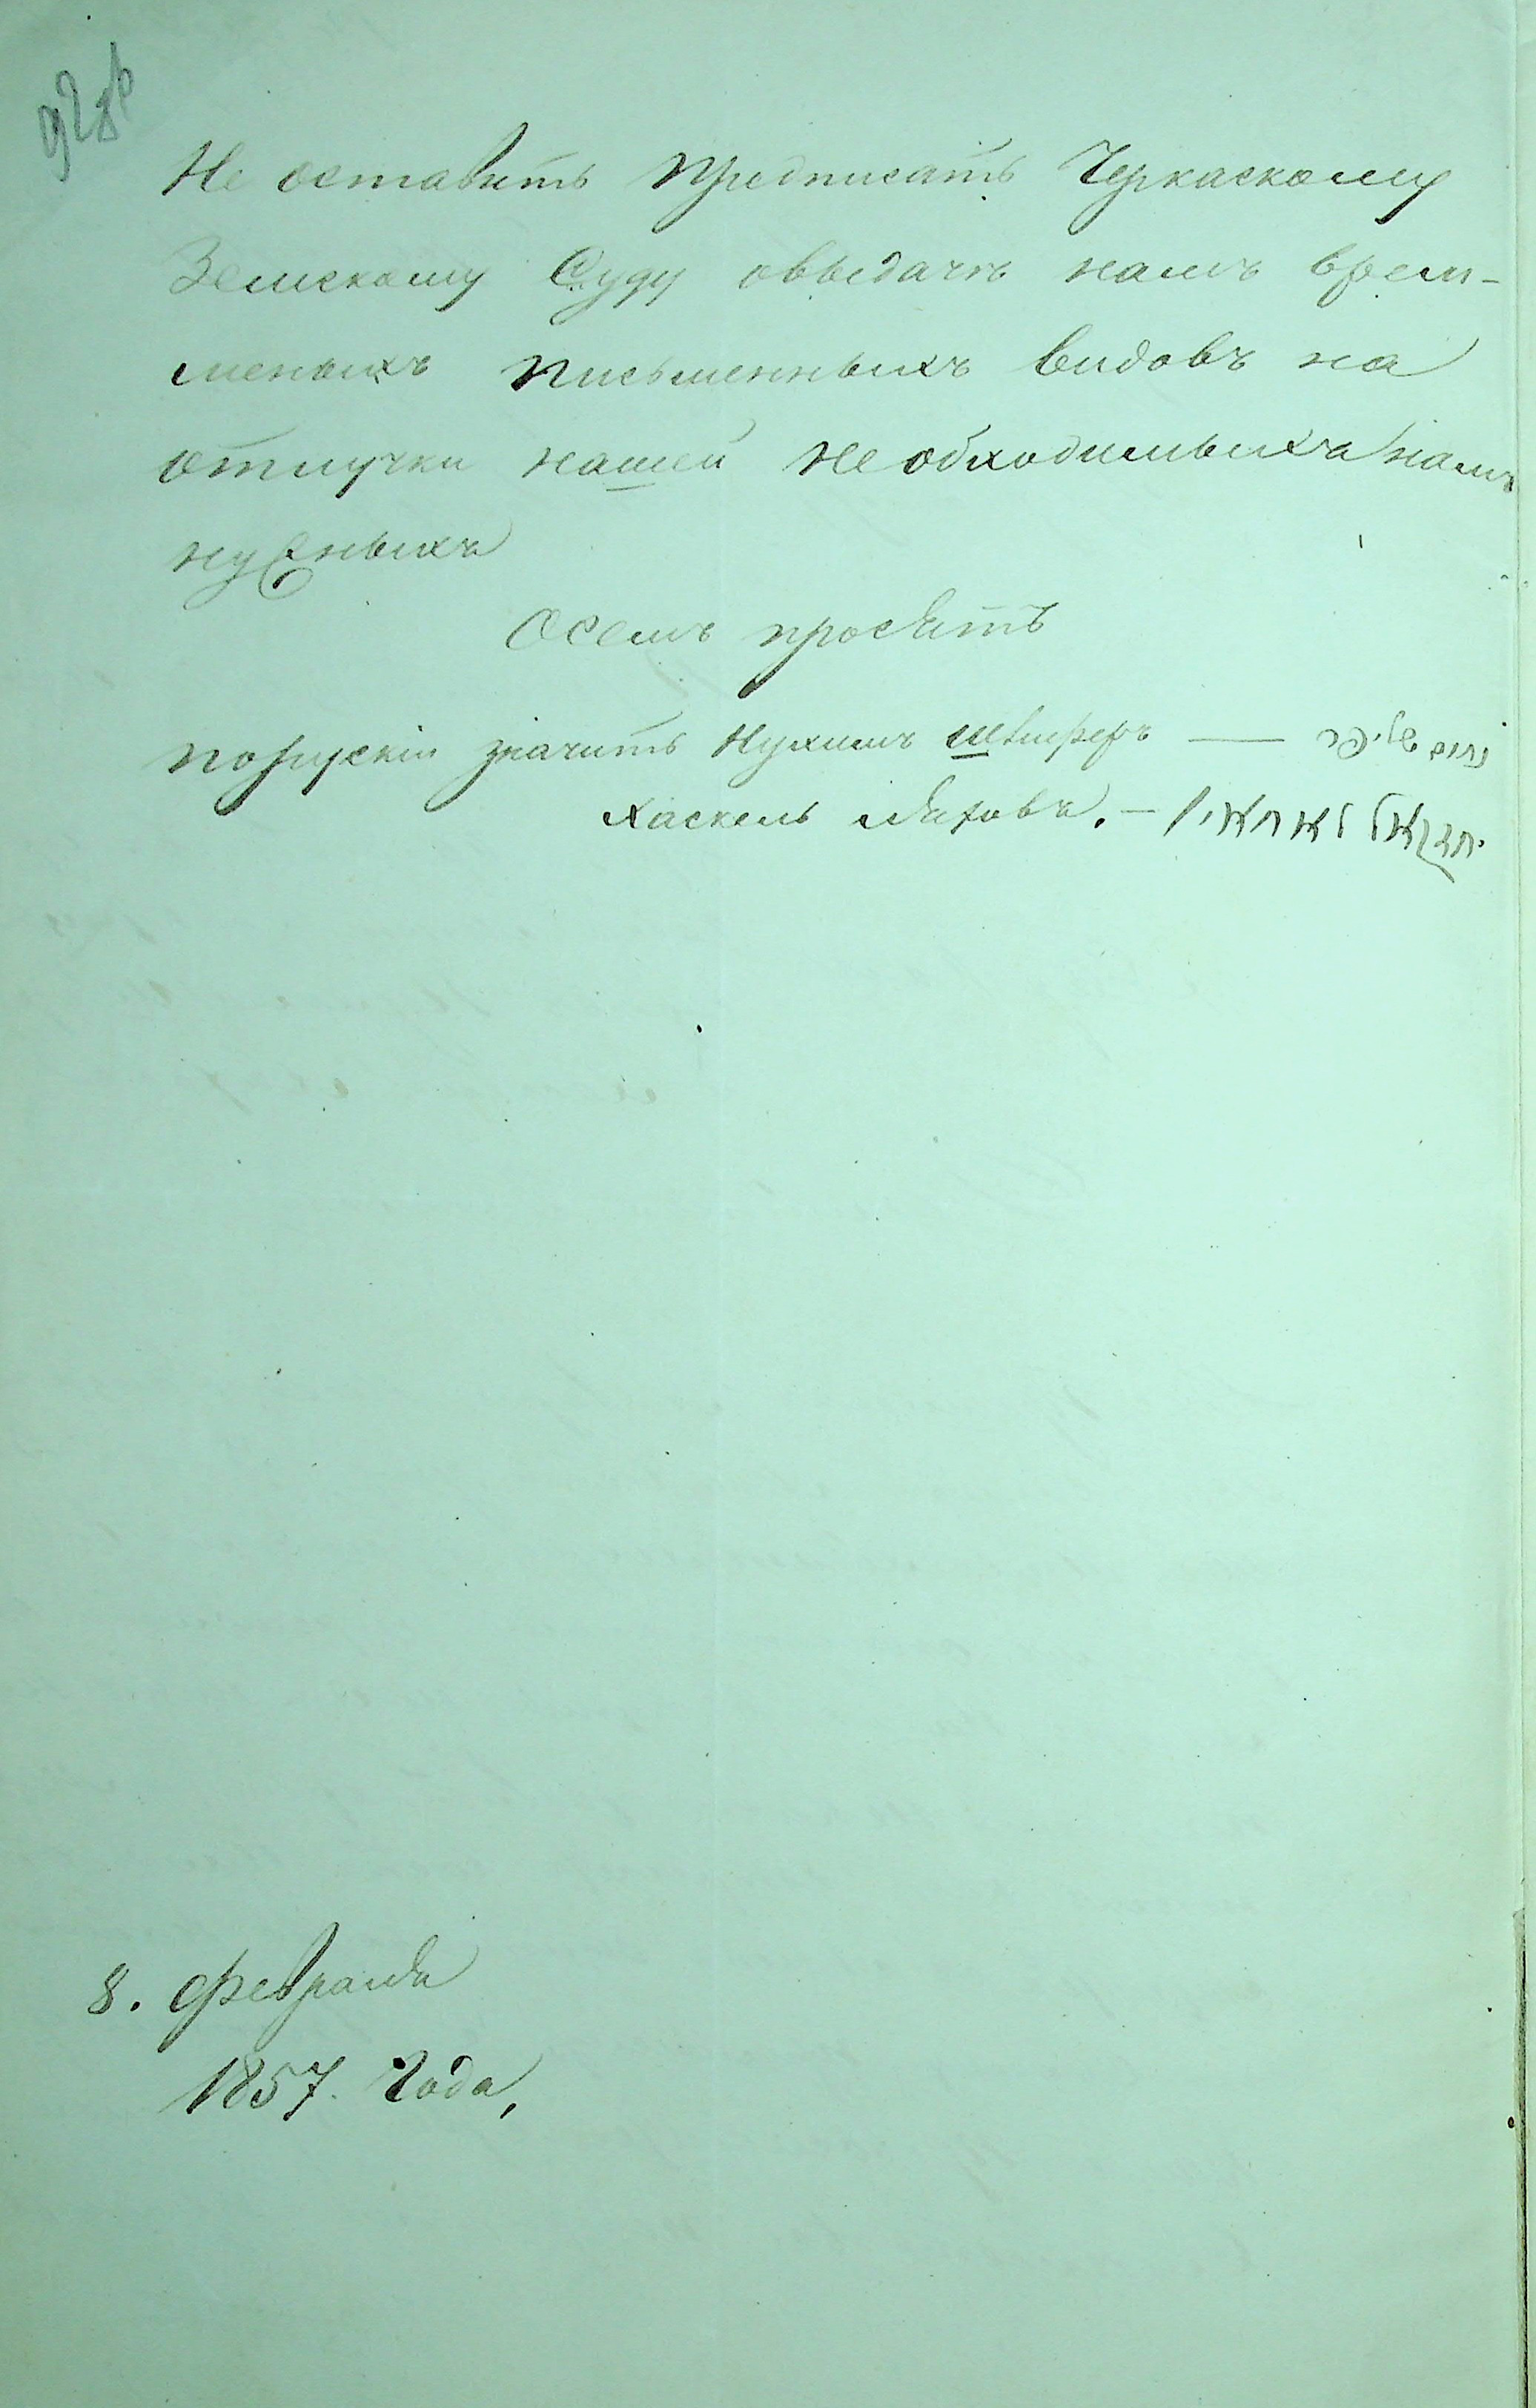 92об
Не оставить предписать Черкаскому
Земскому Суду овыдачи намъ врем-
меныхъ письменныхъ видовъ на
отлучки нашей не обходимыхъ намъ
нужныхъ
О семъ просятъ
порускіи значитъ Нухимъ
Хаскель
8. Февраля
1857. Года,